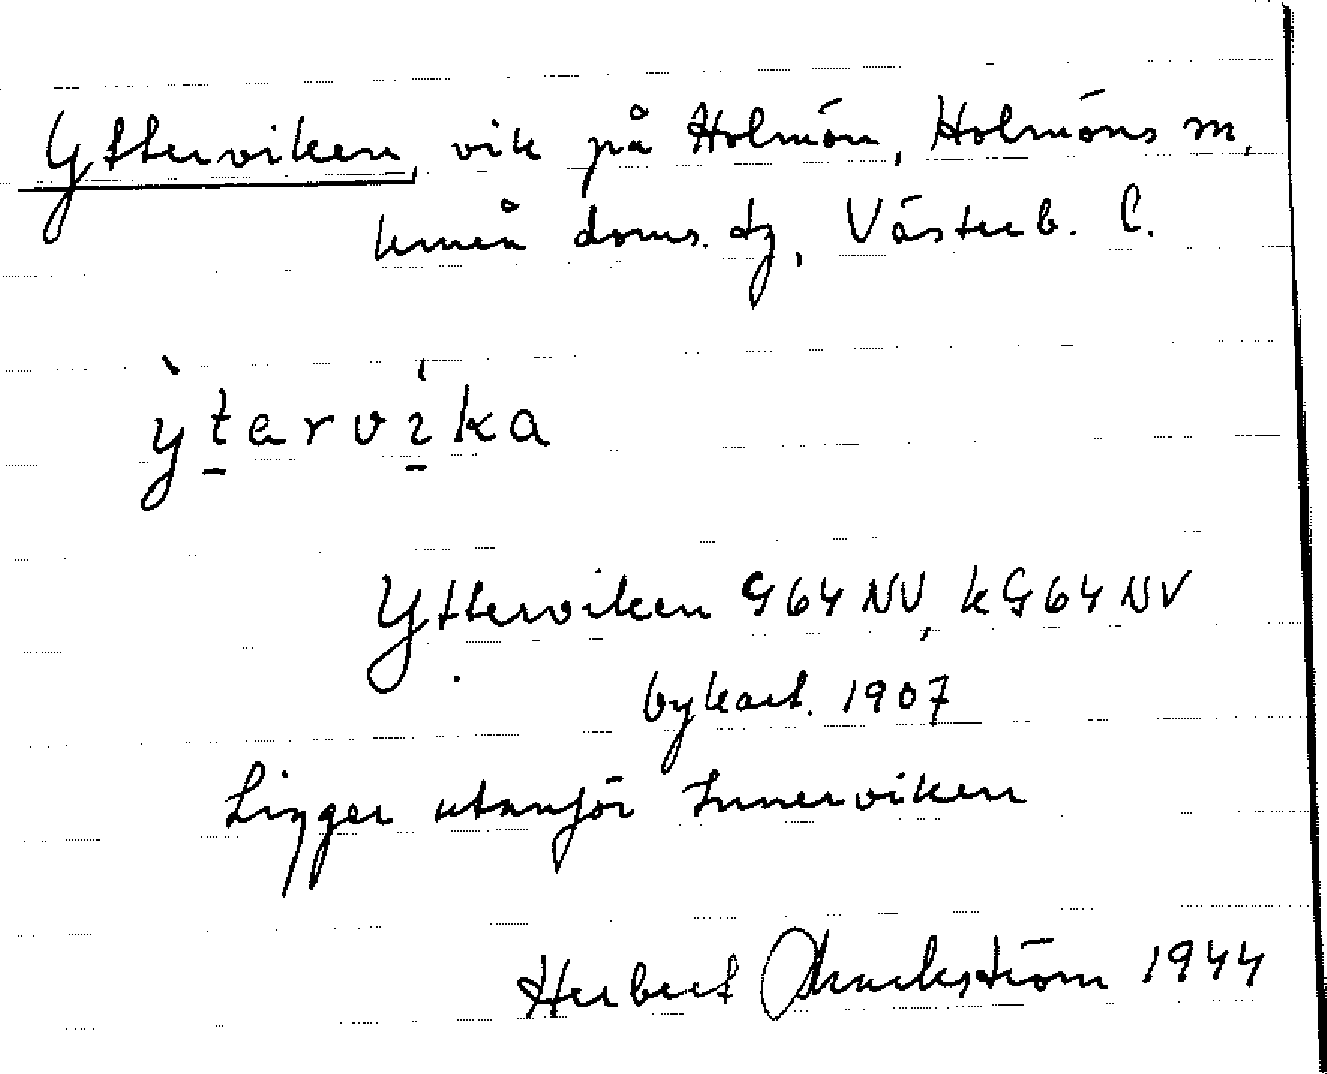 Ytterviken, vik på Holmön, Holmöns sn,
Umeå doms. tg, Västerb. l.
ỳt̠ərvi̠̍ka
Ytterviken G64NV, kG64NV
bykart. 1907
Ligger utanför Innerviken
Herbert 1944